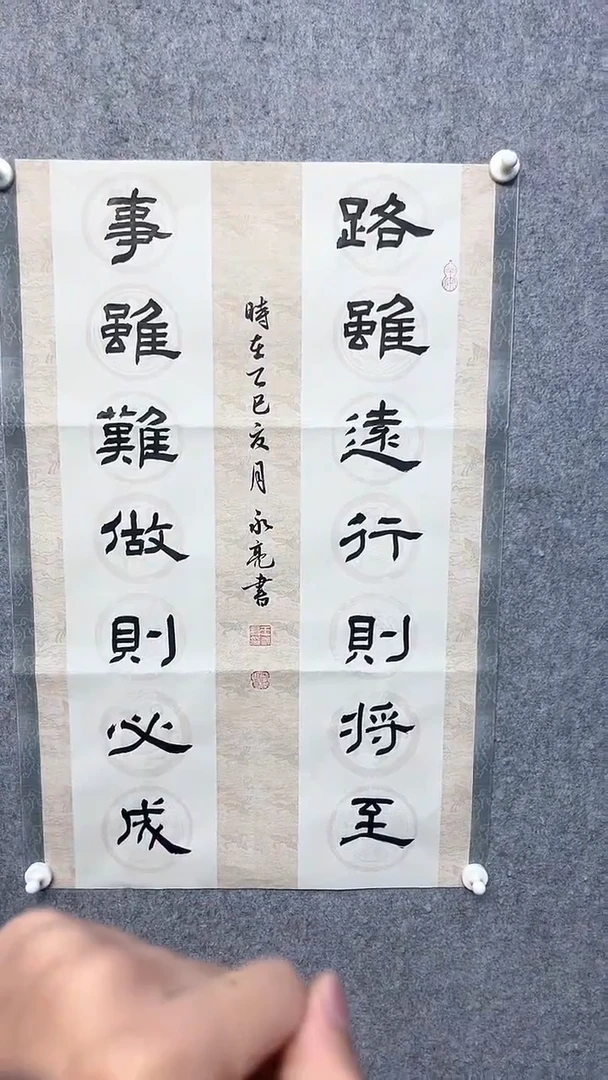 路雖遠行則将至
事雖難做則必成
時在乙巳亥月永亮書